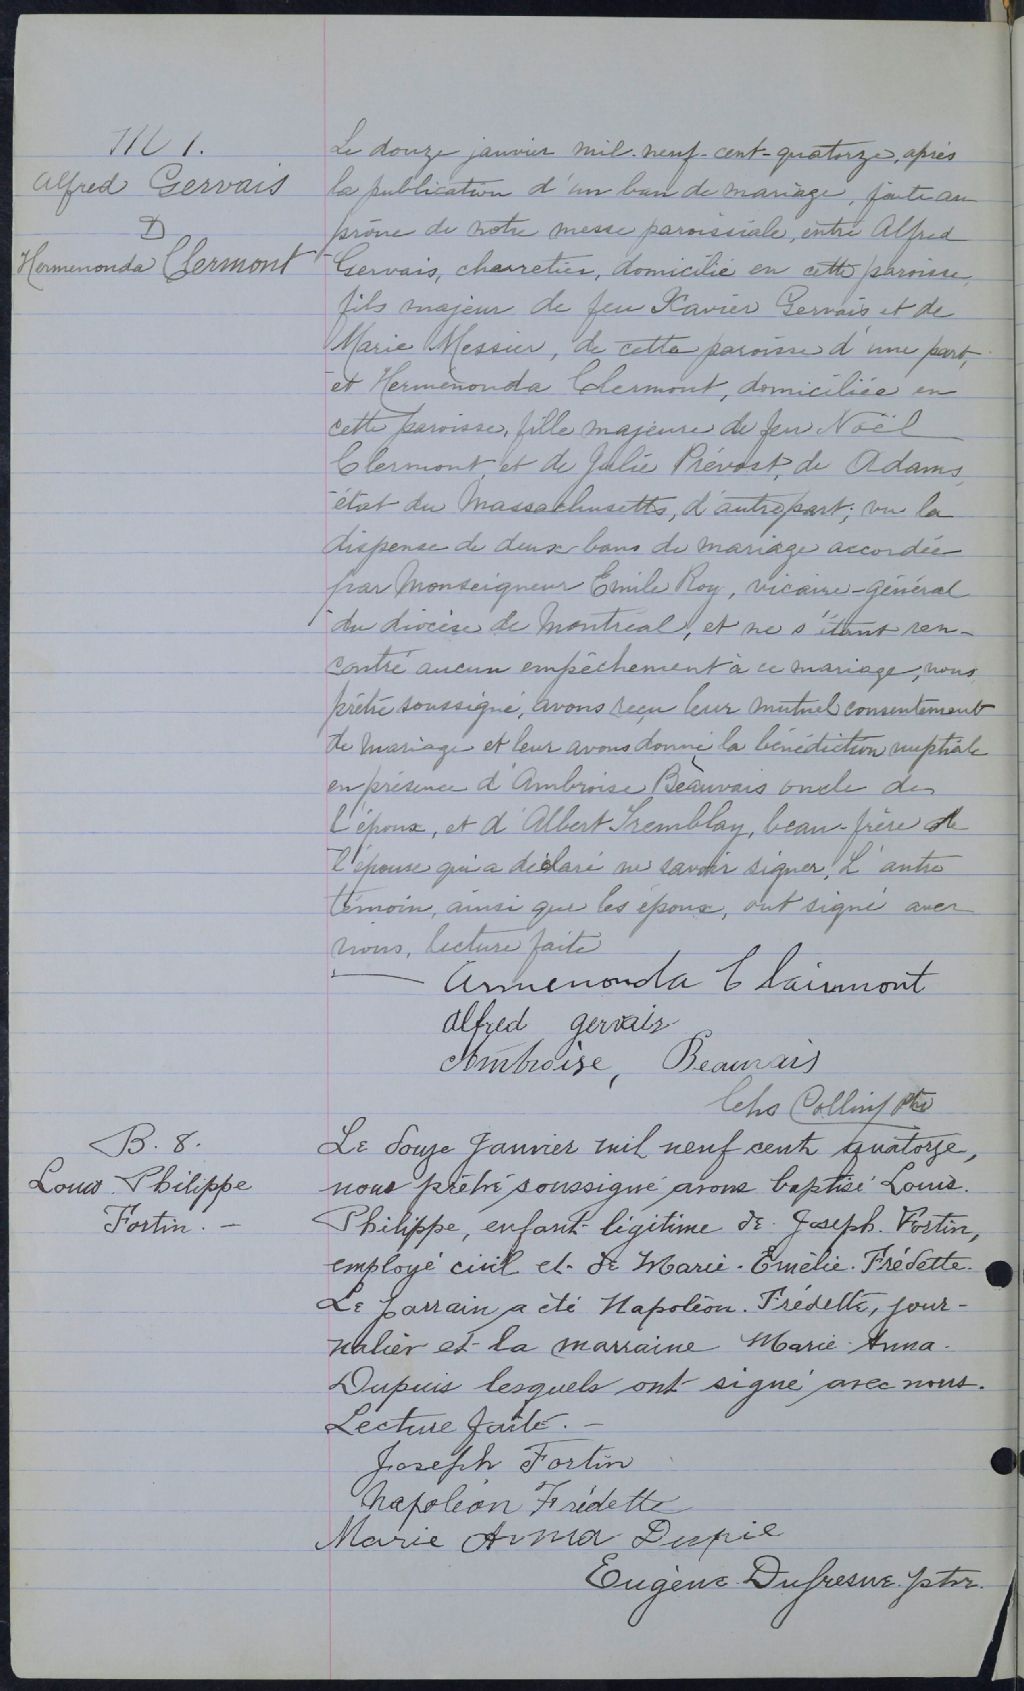 M 1.
Alfred Gervais
D
Hermenonda Clermont
Le douze janvier mil-neuf-cent-quatorze, après
la publication d'un ban de mariage, faite au
prône de notre messe paroissiale, entre Alfred
Gervais, charretier, domicilié en cette paroisse,
fils majeur de feu Xavier Gervais et de
Marie Messier, de cette paroisse d'une part,
et Hermenonda Clermont, domiciliée en
cette paroisse, fille majeure de feu Noël
Clermont et de Julie Prévost, de Adams,
état du Massachusetts, d'autre part; vu la
dispense de deux bans de mariage accordée
par Monseigneur Emile Roy, vicaire-général
du diocèse de Montréal, et ne s'étant ren-
contré aucun empêchement à ce mariage, nous
prêtre soussigné, avons reçu leur mutuel consentement
de mariage et leur avons donné la bénédiction nuptiale
en présence d'Ambroise Beauvais oncle de
l'époux, et d'Albert Tremblay, beau-frère de
l'épouse qui a déclaré ne savoir signer. L'autre
témoin, ainsi que les époux, ont signé avec
nous, lecture faite
Armenonda Clairmont
Alfred gervais
Ambroise, Beauvais
Chs Collin ptre
B. 8.
Louis Philippe
Fortin. –
Le douze Janvier mil neuf cent quatorze,
nous prêtre soussigné avons baptisé Louis.
Philippe, enfant légitime de Joseph Fortin,
employé civil et de Marie-Emélie Frédette.
Le parrain a été Napoléon. Frédette, jour-
nalier et la marraine Marie-Anna.
Dupuis lesquels ont signé avec nous.
Lecture faite. –
Joseph Fortin
Napoléon Frédette
Marie Anna Dupuie
Eugène Dufresne ptre.